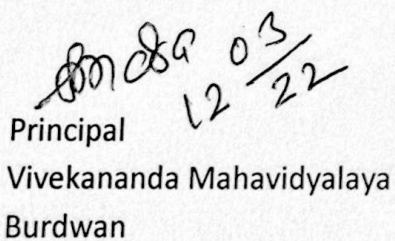 12/03/22
Principal
Vivekananda Mahavidyalaya
Burdwan